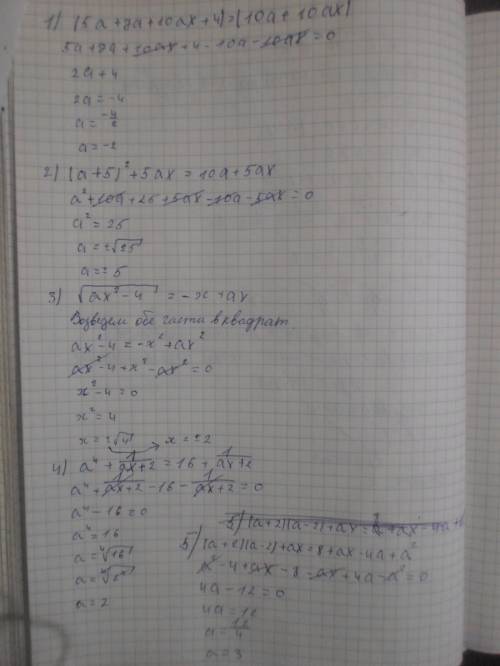 1) (5a+7a+10ax+4)=(10a+10ax)
5a+7a+10ax+4-10a-10ax=0
2a+4
2a=-4
a=-4/2
a=-2
2) (a+5)²+5ax=10a+5ax
a²+10a+25+5ax-10a-5ax=0
a²=25
a=±√25
a=±5
3) √ax²-4 = -x+ax
Возведем обе части в квадрат
ax²-4=-x²+ax²
ax²-4+x²-ax²=0
x²-4=0
x²=4
x=±√4 x=±2
4) a⁴+1/ax+2=16+1/ax+2
a⁴+1/ax+2-16-1/ax+2=0
a⁴-16=0
a⁴=16
a=⁴√16
a=⁴√2⁴
a=2
5) (a+2)(a-2)+ax=8+ax-4a+a²
a²-4+ax-8-ax+4a-a²=0
4a-12=0
4a=12
a=12/4
a=3